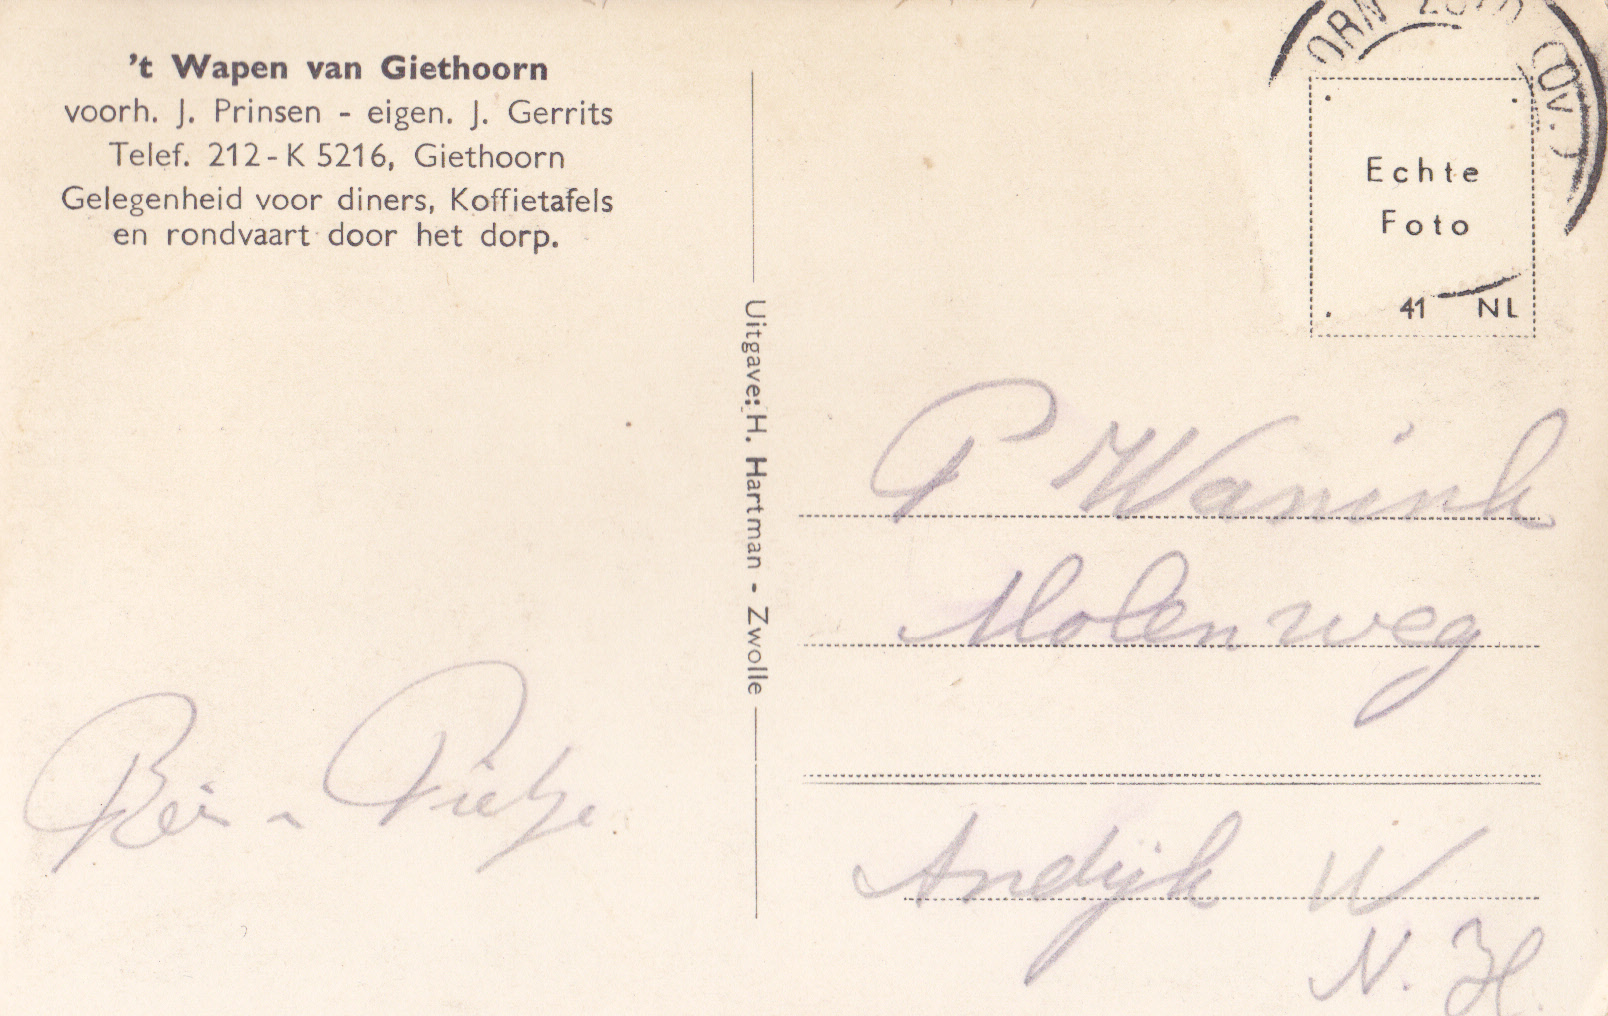 't Wapen van Giethoorn
voorh. J. Prinsen - eigen. J. Gerrits
Telef. 212 - K 5216, Giethoorn
Gelegenheid voor diners, Koffietafels
en rondvaart door het dorp.
Uitgave: H. Hartman - Zwolle
Echte
Foto
41 NL
P Wanink
Molenweg
Andijk W
N. H.
Rein Pietje